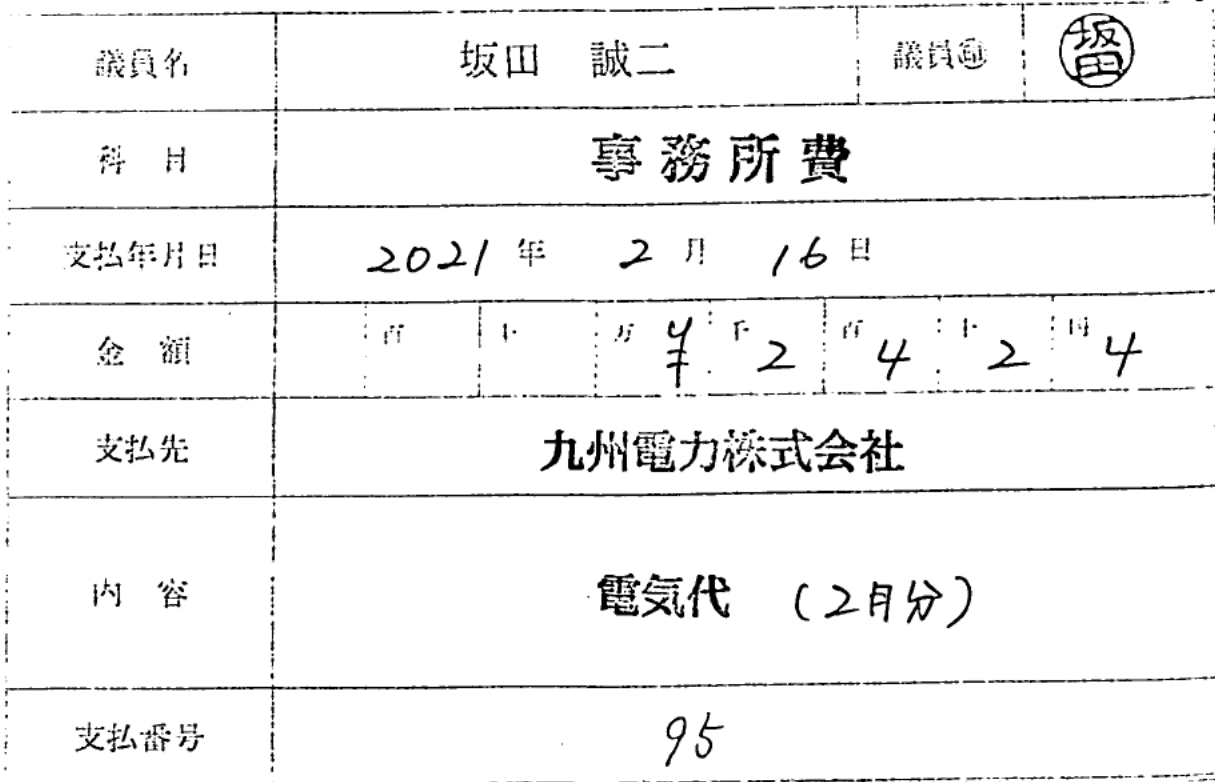 議員名 坂田 誠二 議員㊞ 坂田
科目 事務所費
支払年月日 2021年 2月 16日
金額 百 十 万 ¥ 千 2 百 4 十 2 円 4
支払先 九州電力株式会社
内容 電気代 (2月分)
支払番号 95